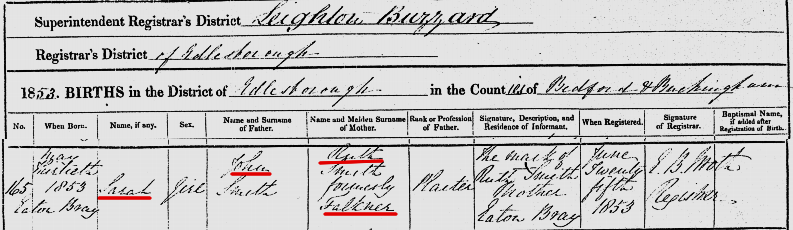 Superintendent Registrar's District Leighton Buzzard
Registrar's District of Edlesborough
1853. BIRTHS in the District of Edlesborough in the Counties of Bedford & Buckingham
No. When Born. Name, if any. Sex. Name and Surname of Father. Name and Maiden Surname of Mother. Rank or Profession of Father. Signature, Description, and Residence of Informant. When Registered. Signature of Registrar. Baptismal Name, if added after Registration of Birth.
165
May
1853
Eaton Bray
Sarah
Girl
John
Smith
Ruth
Smith
formerly
Falkner
The mark of
Ruth Smith
Mother
Eaton Bray
June
Twenty
fifth
1853
Registrar